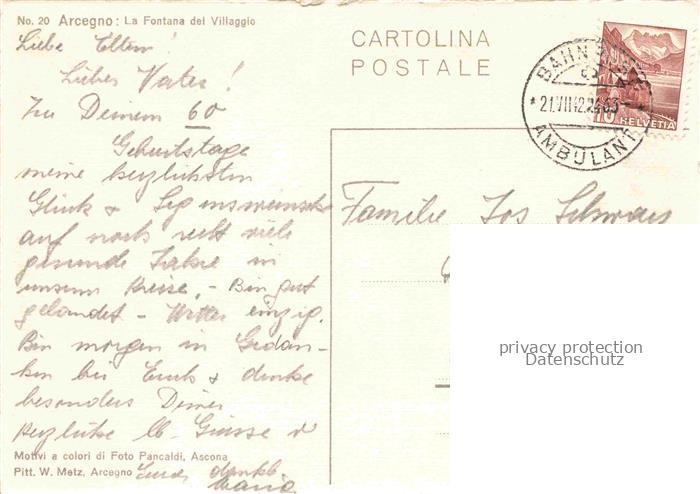 No. 20 Arcegno: La Fontana del Villaggio
Liebe Eltern!
Lieber Vater!
Zu Deinem 60
Geburtstage
meine herzlichsten
Glück & Segenswünsche
auf noch recht viele
gesunde Jahre in
unserm Kreise. - Bin gut
gelandet - Wetter einzig.
Bin morgen in Gedan-
ken bei Euch & denke
besonders Deiner
Herzliche Grüsse
Eure dankb
Maria
Motivi a colori di Foto Pancaldi, Ascona
Pitt. W. Metz, Arcegno
CARTOLINA
POSTALE
AMBULANT
10 HELVETIA
Familie Jos
privacy protection
Datenschutz